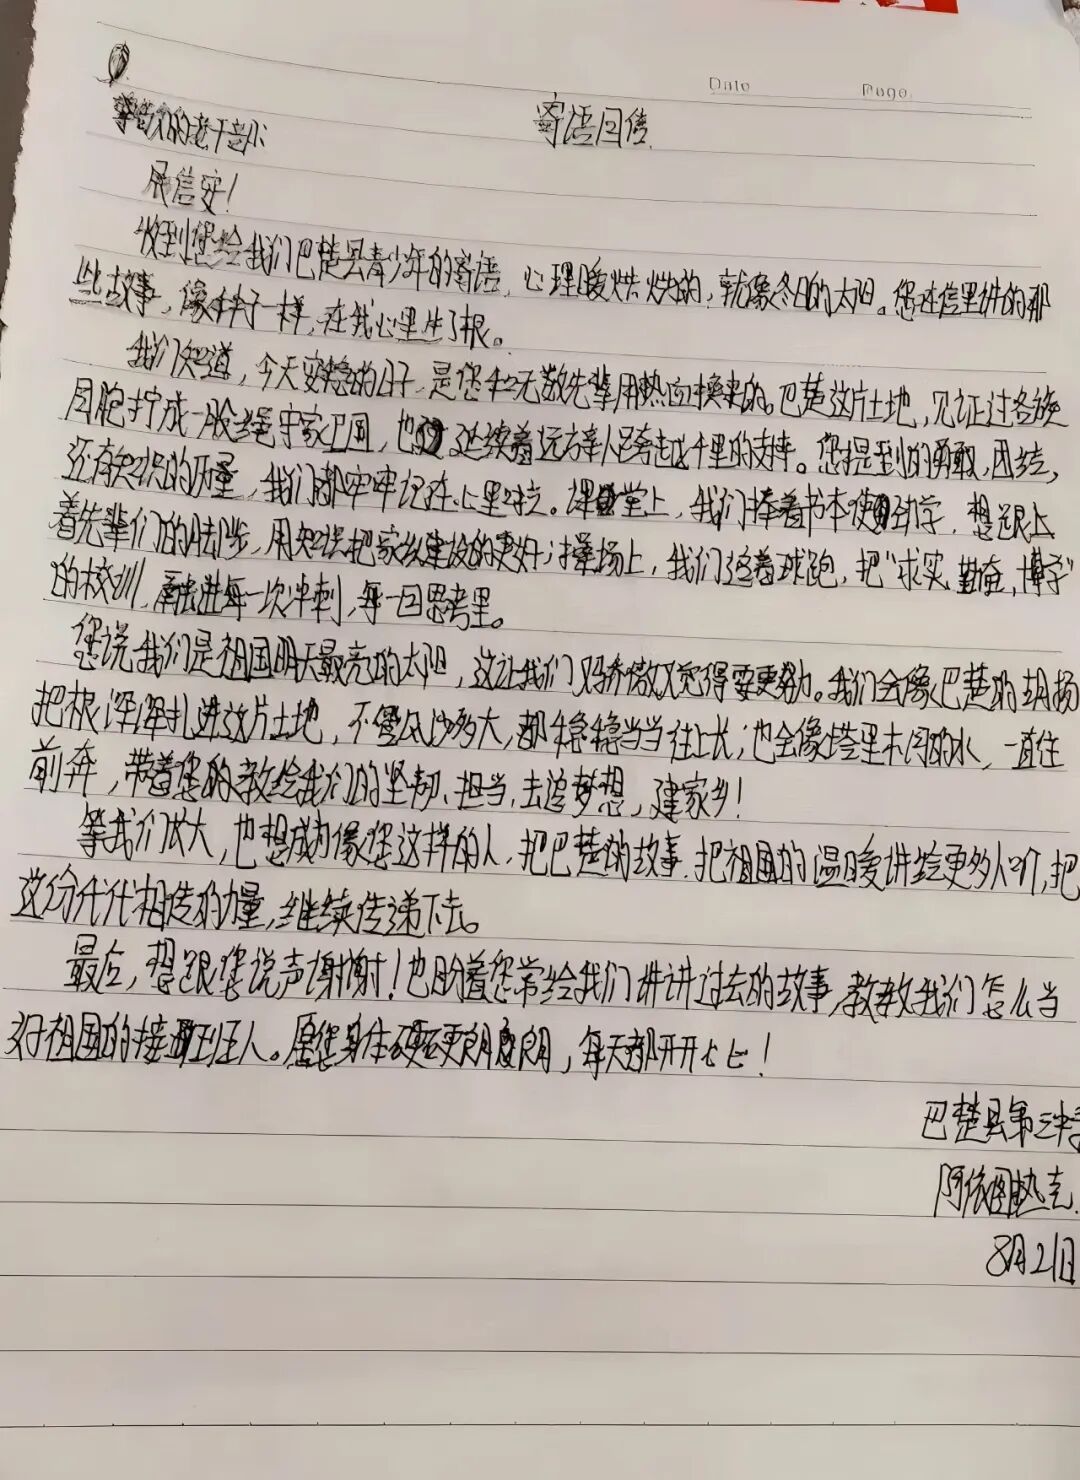 Date Page
寄语回信
尊敬的老干部
展信安！
收到您给我们巴楚县青少年的寄语，心理暖烘烘的，就像冬日的太阳。您在信里讲的那
些故事，像种子一样，在我心里生了根。
我们知道，今天安稳的日子，是您和无数先辈用热血换来的。巴楚这片土地，见证过各族
同胞拧成一股绳守家卫国，也延续着远方亲人跨越千里的支持。您提到的勇敢，团结，
还有知识的力量，我们都牢牢记在心里了。课堂上，我们捧着书本使劲学，想跟上
着先辈们的脚步，用知识把家乡建设的更好；操场上，我们追着球跑，把“求实，勤奋，博学”
的校训，融进每一次冲刺，每一回思考里。
您说我们是祖国明天最亮的太阳，这让我们又骄傲又觉得要更努力。我们会像巴楚的胡杨
把根深深扎进这片土地，不管风沙多大，都稳稳当当往上长；也会像塔里木河的水，一直往
前奔，带着您的教给我们的坚韧、担当，去追梦想，建家乡！
等我们长大，也想成为像您这样的人，把巴楚的故事，把祖国的温暖讲给更多人听，把
这份代代相传的力量，继续传递下去。
最后，想跟您说声谢谢！也盼着您常给我们讲讲过去的故事，教教我们怎么当
好祖国的接班人。愿您身体硬硬朗朗，每天都开开心心！
巴楚县第三中学
阿依图热克
8月21日